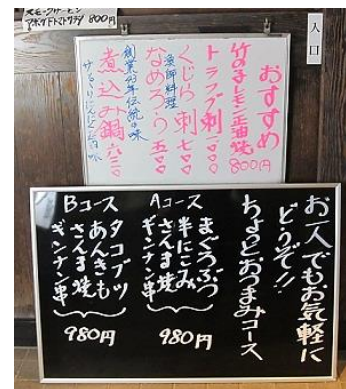 スモークサーモン
アボカドトマトサラダ 800円
入口
おすすめ
竹の子レモン正油焼 800円
トラフグ刺 一〇〇〇
くじら刺 七〇〇
漁師料理
なめろう 五〇〇
創業43年伝統の味
煮込み鍋 六三〇
お一人でもお気軽に
どうぞ!!
ちょっとおつまみコース
Aコース
まぐろぶつ
半にこみ
さんま焼
ギンナン串
980円
Bコース
タコブツ
あんきも
さんま焼
ギンナン串
980円